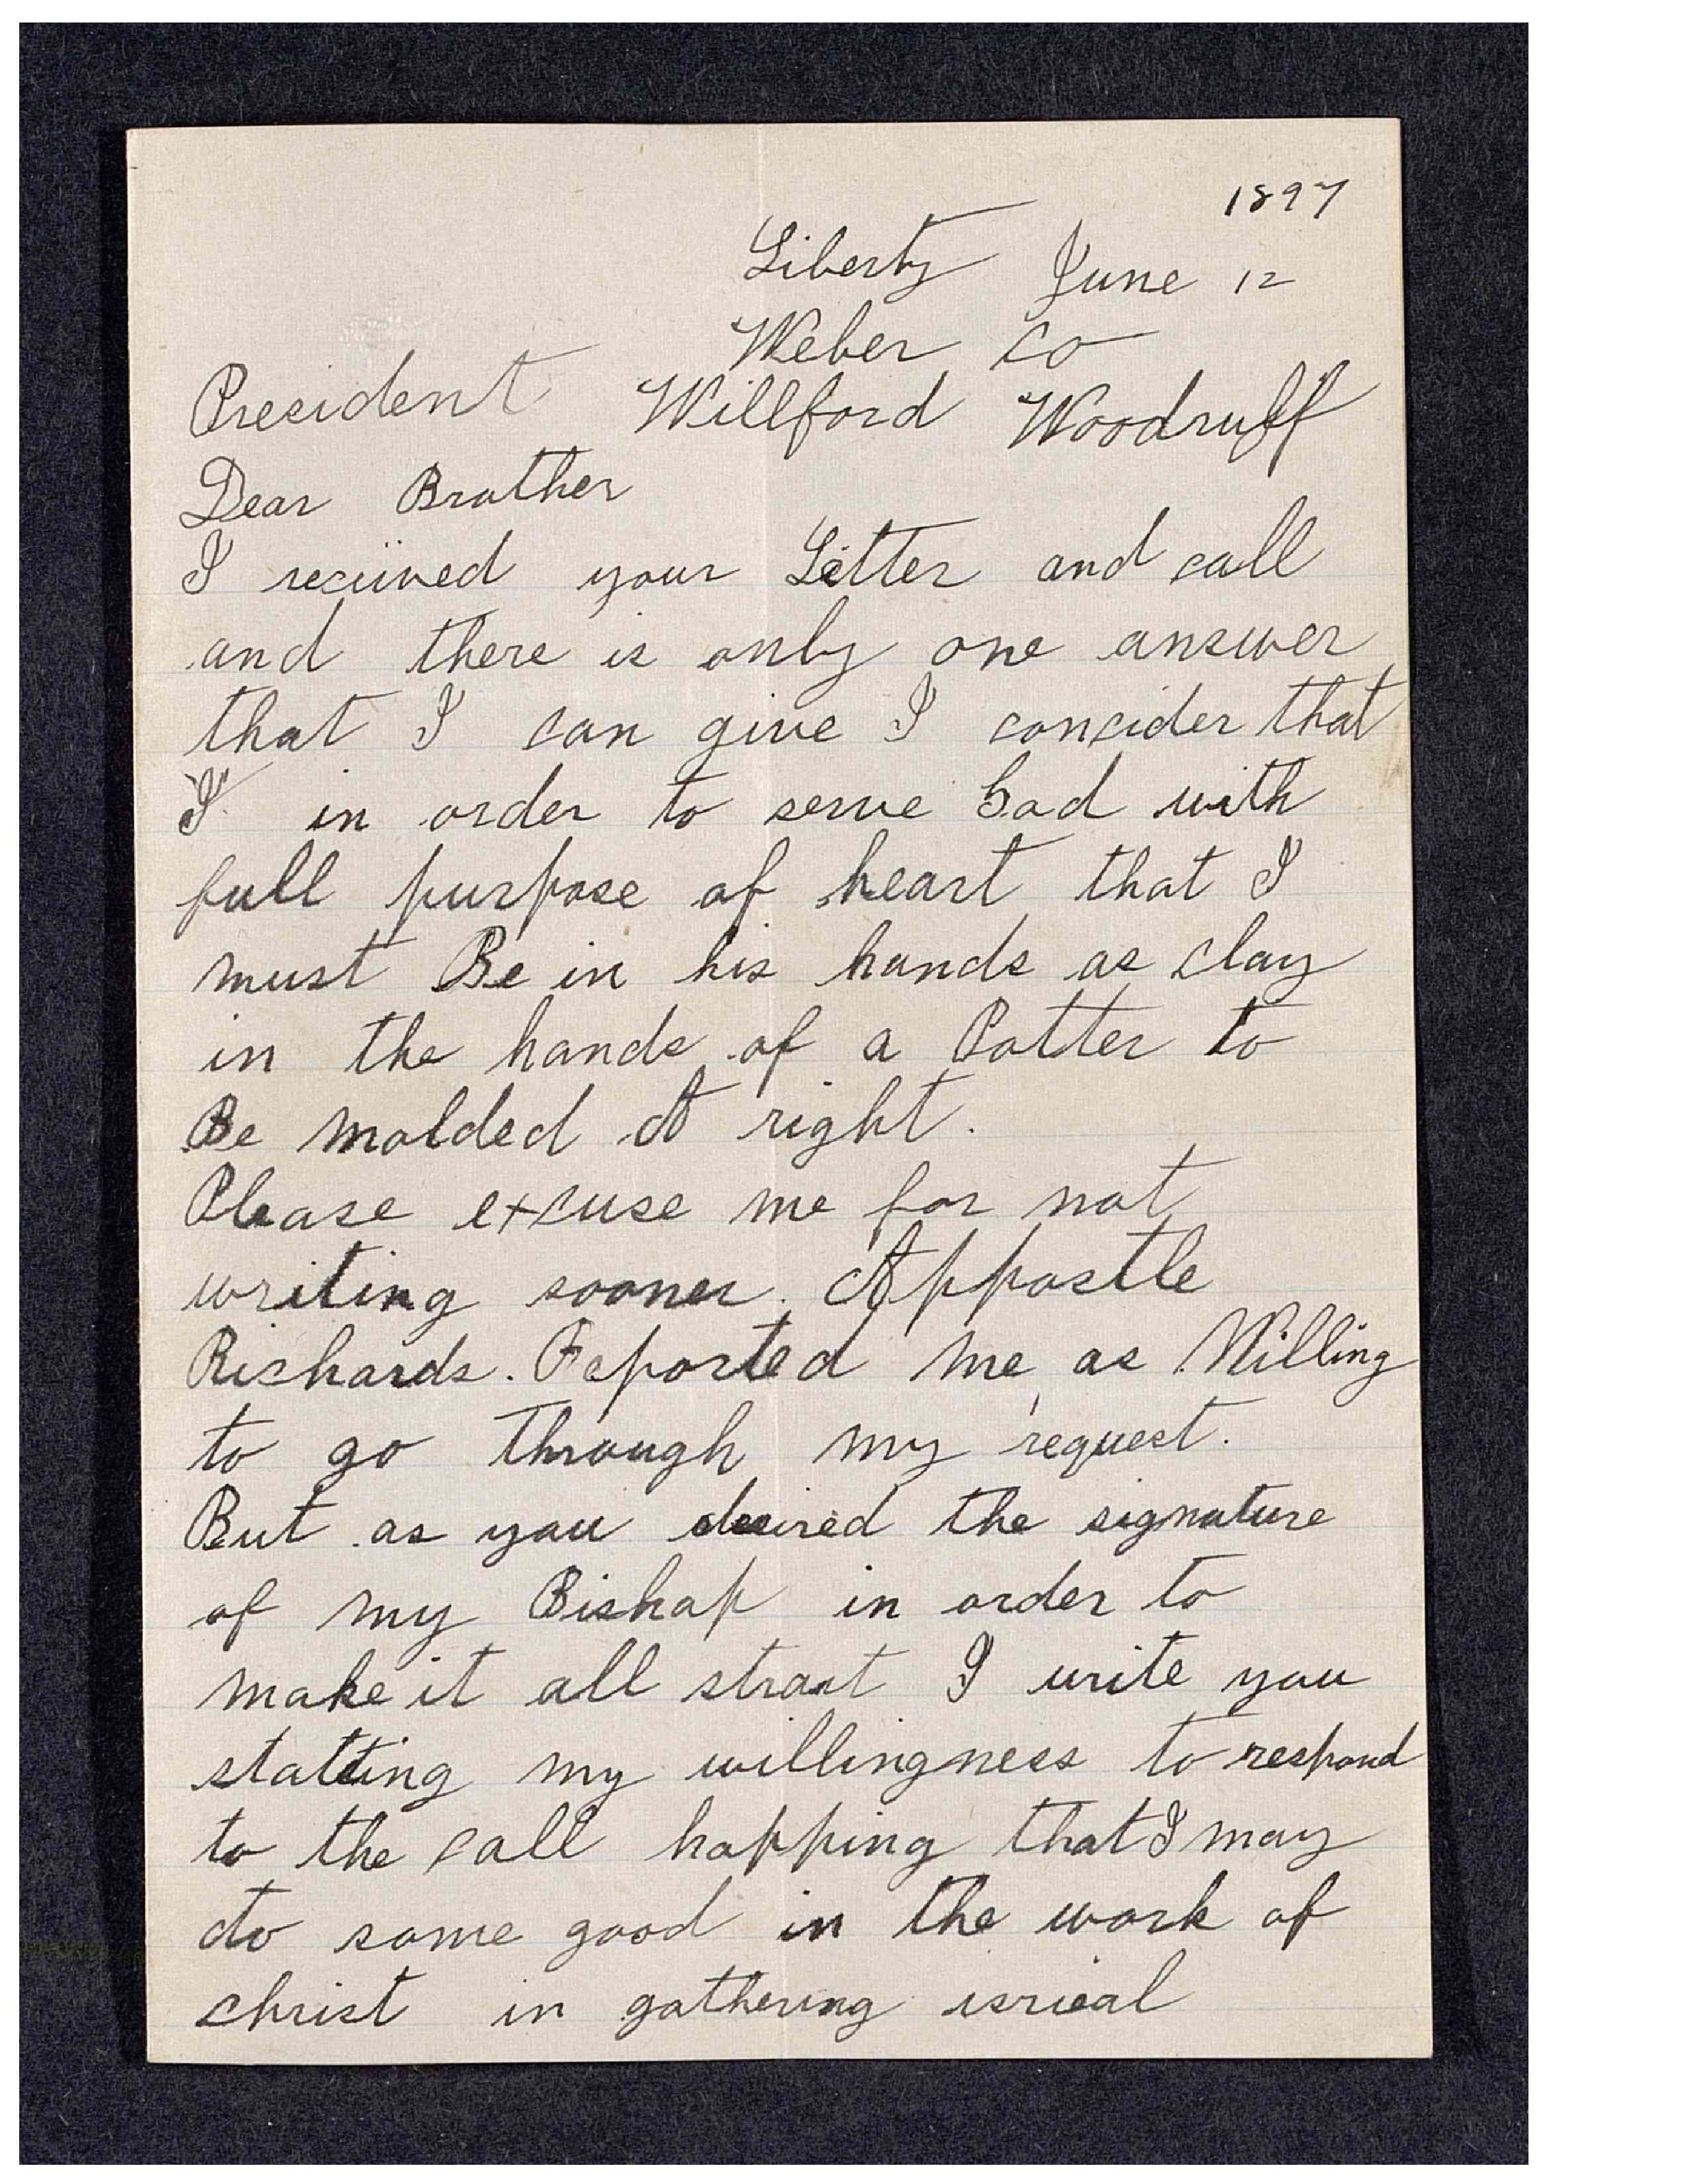 1897
Liberty June 12
Weber Co
President Willford Woodruff
Dear Brother
I reciived your Letter and call
and there is only one answer
that I can give I concider that
I in order to serve God with
full purpose of heart that I
must Be in his hands as clay
in the hands of a Potter to
Be molded A right.
Please excuse me for not
writing sooner. Appostle
Richards. Reported me as Willing
to go through my request.
But as you desired the signature
of my Bishop in order to
make it all strait I write you
statting my willingness to respond
to the call hopping that I may
do some good in the work of
christ in gathering isrieal